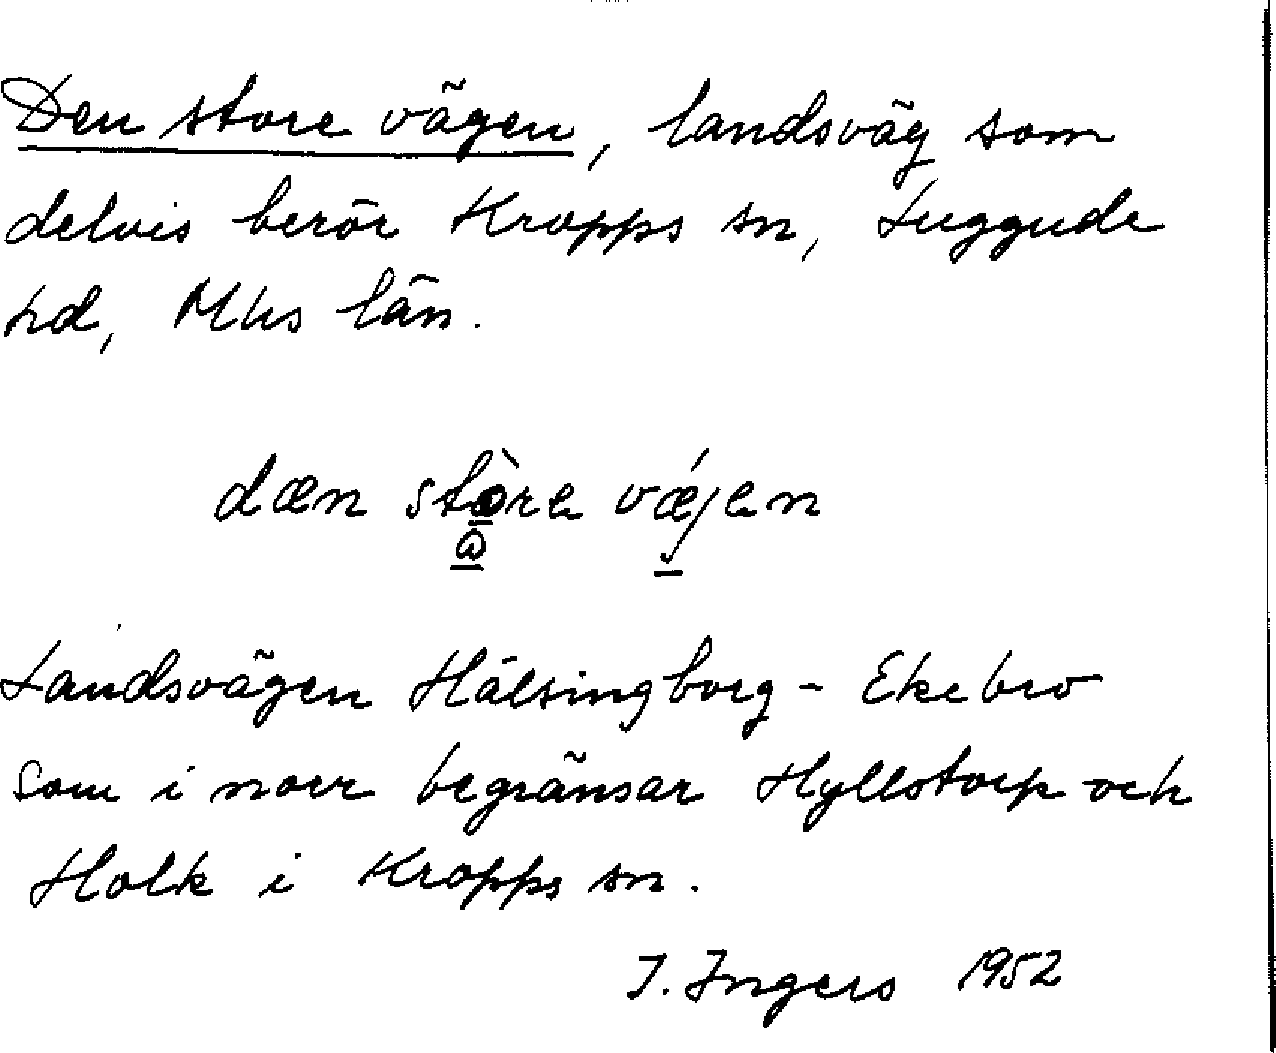 Den store vägen, landsväg som
delvis berör Kropps sn, Luggude
hd, Mhs län.
dæn stòre vǽjen
Landsvägen Hälsingborg - Ekebro
som i norr begränsar Hyllstorp och
Holk i Kropps sn.
I. Ingers 1952